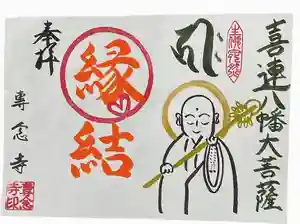 喜連八幡大菩薩
縁結
奉拝
専念寺
専念
寺印